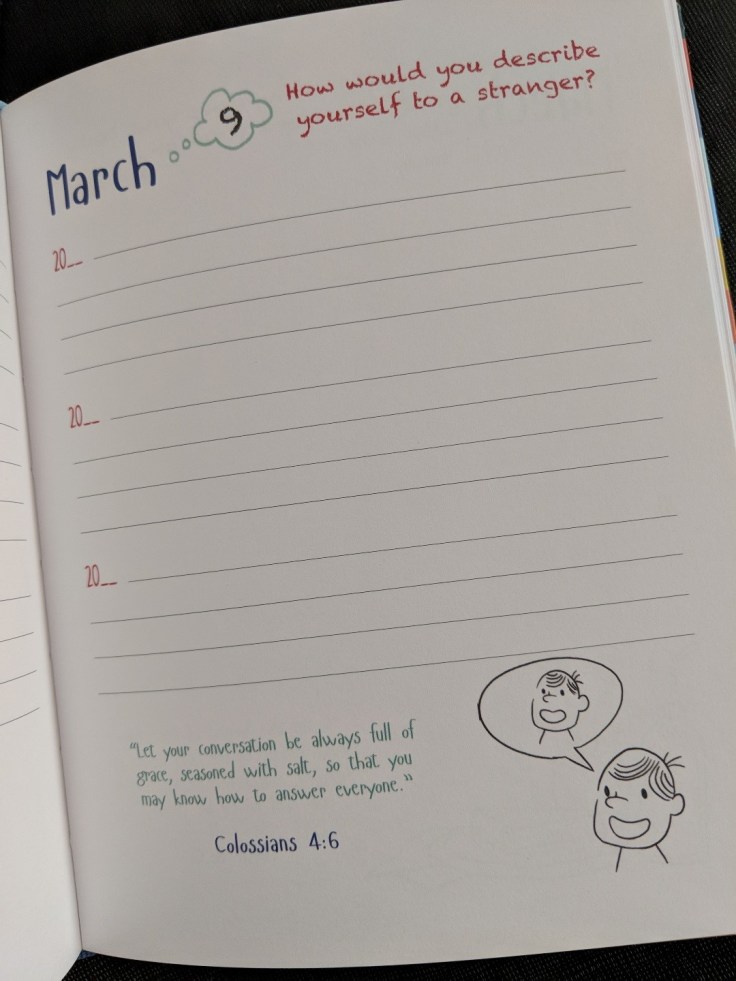 How would you describe
yourself to a stranger?
March 9
20__
20__
20__
"Let your conversation be always full of
grace, seasoned with salt, so that you
may know how to answer everyone."
Colossians 4:6